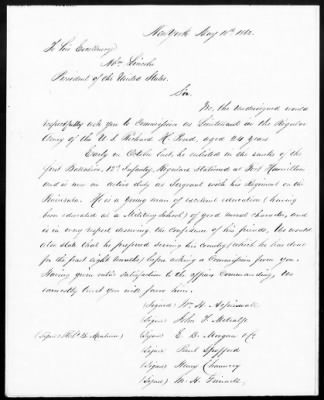 New York May 10th 1862.
To his Excellency
Abm Lincoln
President of the United States.
Sir
We, the undersigned would
respectfully ask you to Commission as Lieutenant in the Regular
Army of the U S Richard H. Pond, aged 24 years
Early in October last, he enlisted in the ranks of the
first Battalion, 12th Infantry, Regulars stationed at Fort Hamilton
and is now on active duty as Sergeant with his Regiment on the
Peninsula. He is a young man of excellent education (having
been educated at a Military School) of good moral character, and
is in every respect deserving the confidence of his friends. We would
also state that he preferred serving his country (which he has done
for the past eight months) before asking a Commission from you.
Having given entire satisfaction to the officers Commanding, We
earnestly trust you will favor him.
(Signed) Wm H. Aspinwall
(Signed) John T. Metcalfe
(Signed) Robt B. Minturn) (Signed) E. D. Morgan & Co.
(Signed) Paul Spofford
(Signed) Henry Chauncey
(Signed) M. H. Grinnell